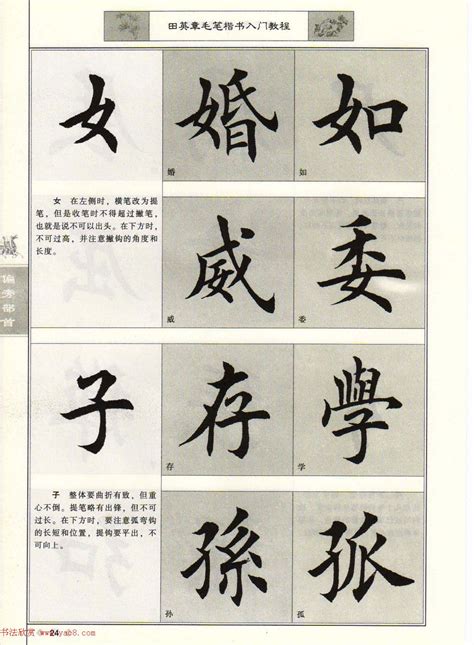 田英章毛笔楷书入门教程
女 婚 如
婚 如
女 在左侧时，横笔改为提
笔，但是收笔时不得超过撇笔，
也就是说不可以出头。在下方时，
不可过高，并注意撇钩的角度和
长度。
威 委
威 委
偏旁部首
子 存 學
存 学
子 整体要曲折有致，但重
心不倒。提笔略有出锋，但不可
过长。在下方时，要注意弧弯钩
的长短和位置，提钩要平出，不
可向上。
孫 孤
孙 孤
24
书法欣赏 www.yab8.com